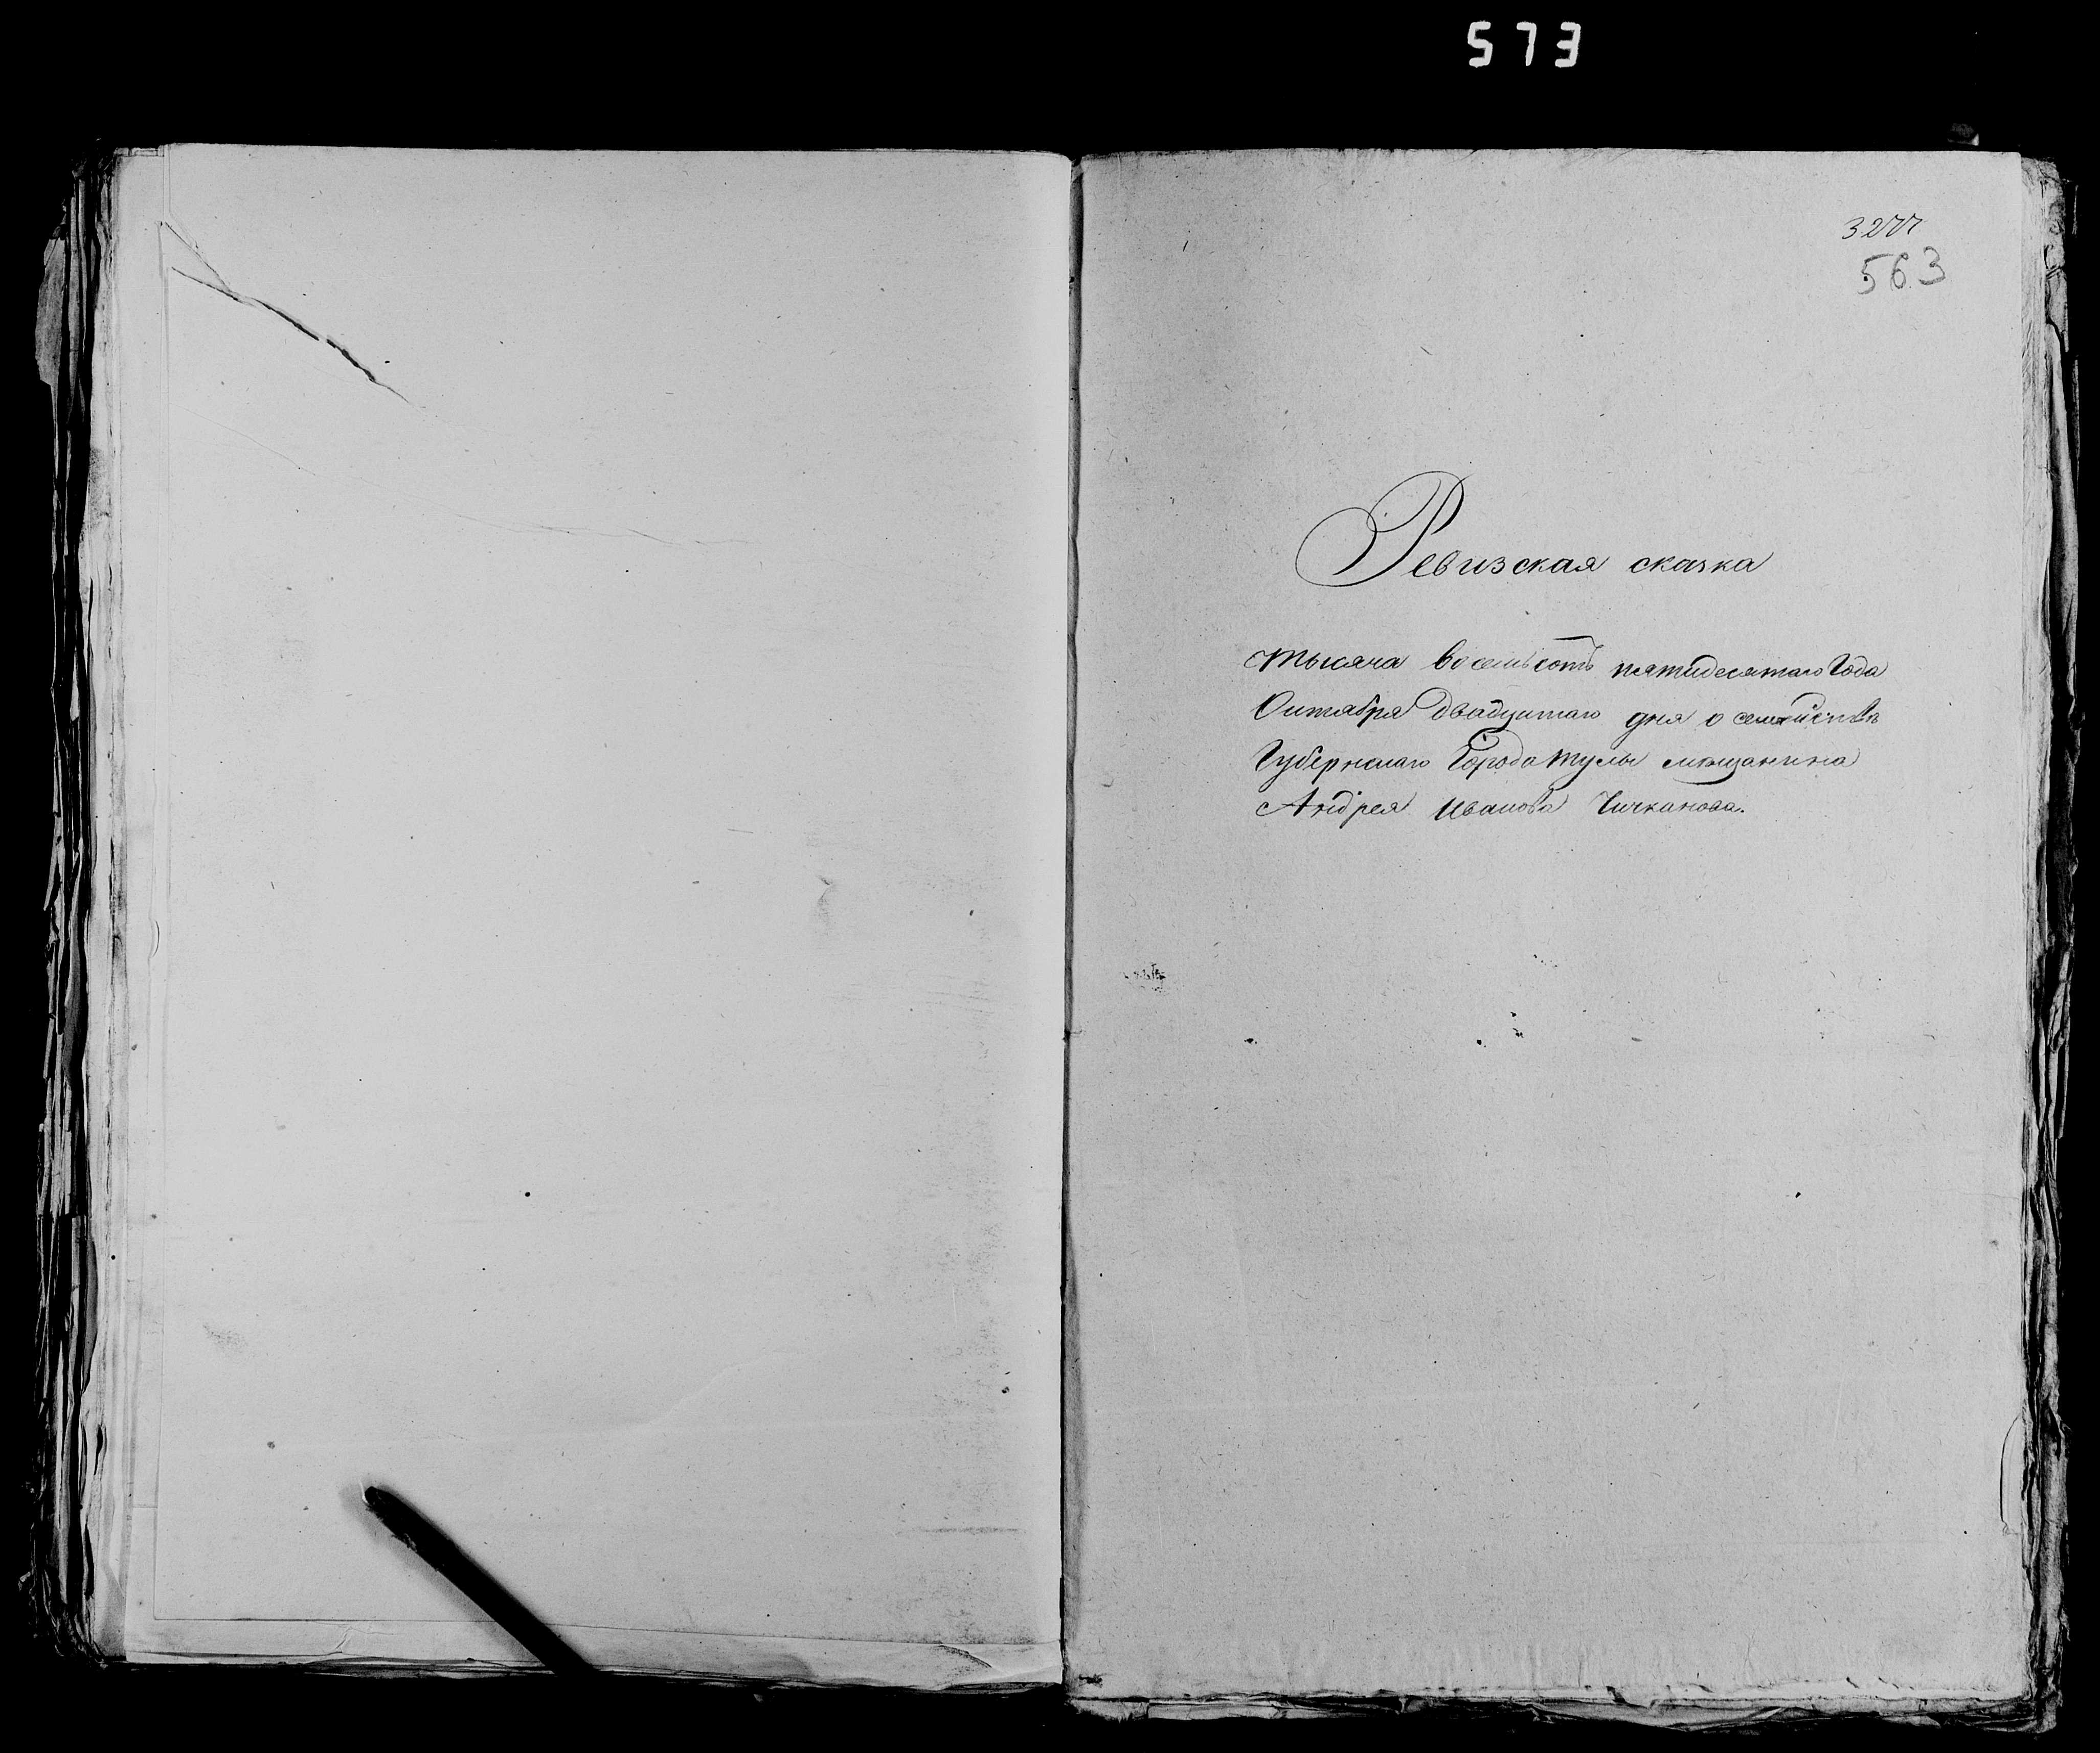 573
3277
563
Ревизская сказка
тысяча восемьсотъ пятидесятаго Года
Октября двадцатаго дня о семействѣ
Губернскаго Города Тулы мѣщанина
Андрея Иванова Чичканова.